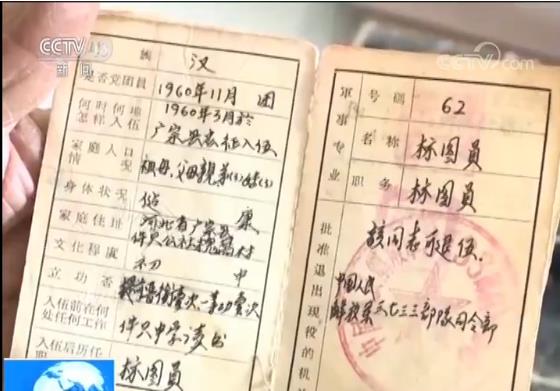 CCTV 13
新闻
CCTV.com
族 汉
是否党团员 1960年11月 团
何时何地怎样入伍 1960年3月於
广宗县志征入伍
家庭人口情况 祖母,父母親弟(3)妹(3)
身体状况 健康
家庭住址 河北省广宗县
件只公社槐窩村
文化程度 初中
立功否
入伍前在何处任何工作 件只中学读书
入伍后历任职 标图员
军事专业
号码 62
名称 标图员
职务 标图员
批准退出现役的机
该同志可退伍.
中国人民
解放军三七三三部队司令部